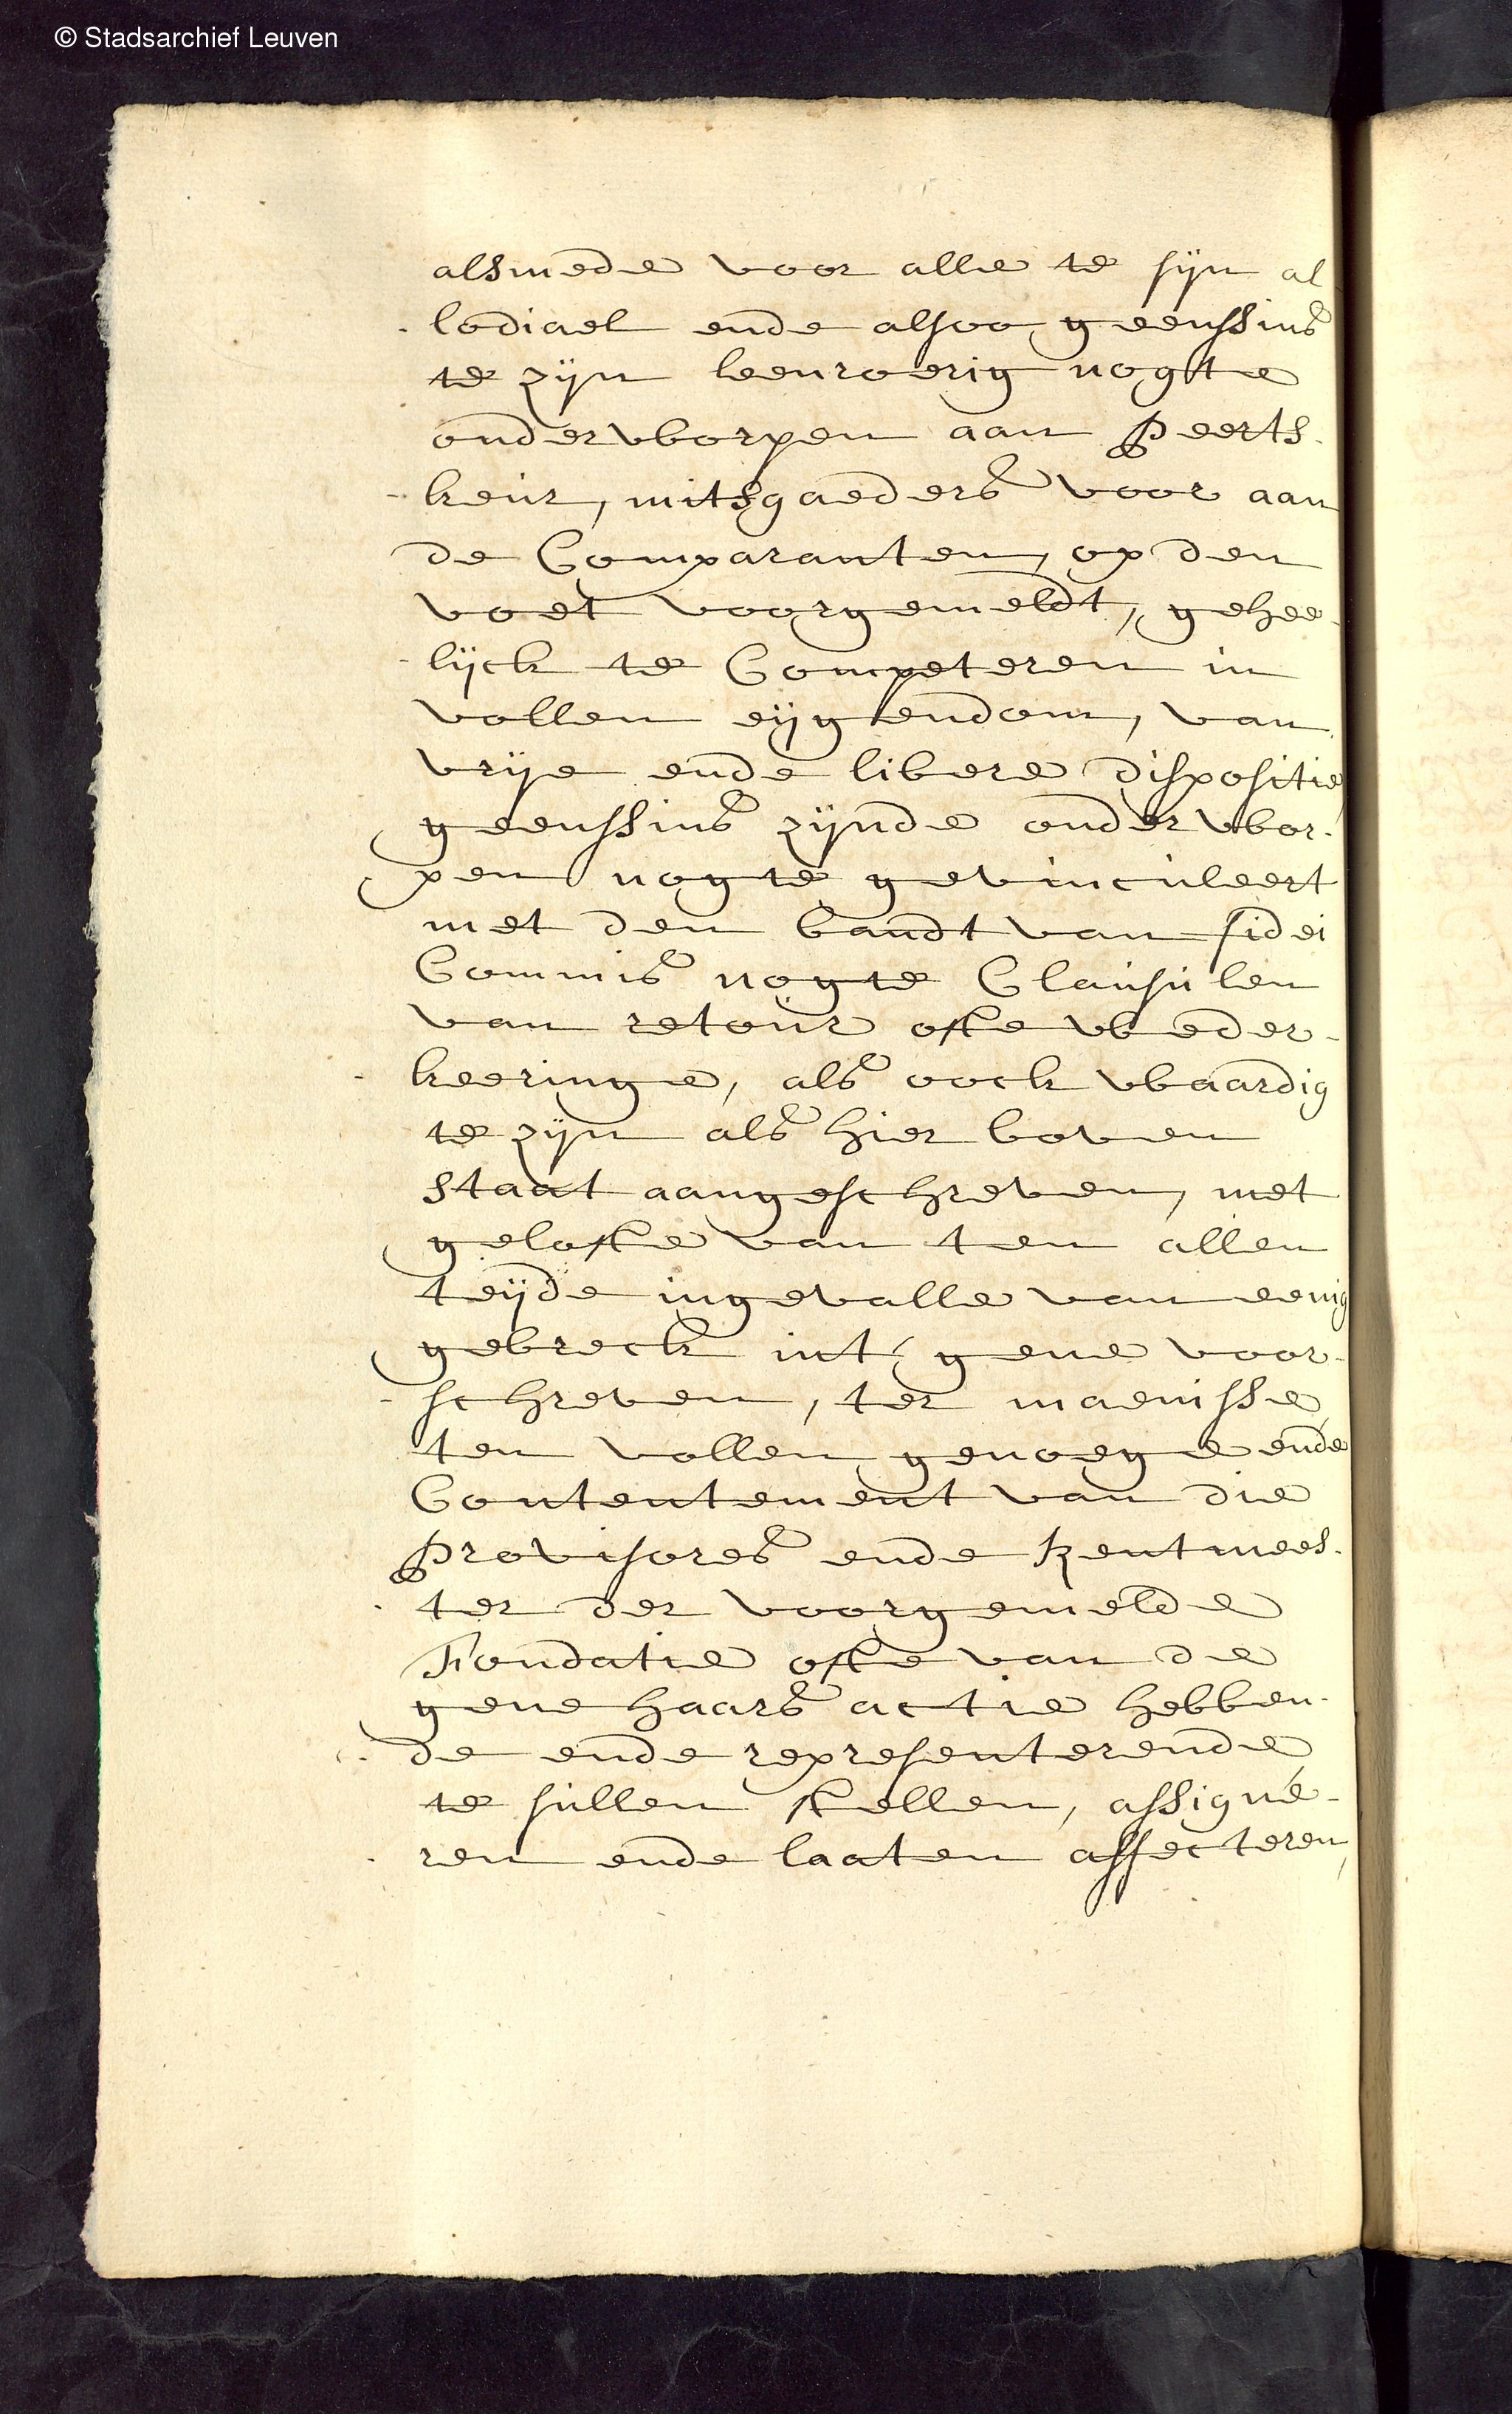 © Stadsarchief Leuven
alsmede voor alle te sijn al
lodiael ende alsoo geenssins
te zijn leenroerig nogte
onderworpen aan Peerts-
keur, mitsgaeders voor aan
de Comparanten, op den
voet voorgemeldt, gehee-
lijck te Competeren in
vollen eijgendom, van
vrije ende libere dispositie
geenssins zijnde onderwor-
pen nogte gevinculeert
met den bandt van fidei
Commis nogte Clausulen
van retour ofte weder-
keeringe, als oock waardig
te zijn als hier boven
staat aangeschreven, met
gelofte van ten allen
teijde ingevalle van eenig
gebreck int gene voor-
schreven, ter maenisse
ten vollen genoege ende
Contentement van die
Provisores ende Rentmees-
ter der voorgemelde
Fondatie ofte van de
gene haars actie hebben-
de ende representerende
te sullen stellen, assigne-
ren ende laaten affecteren,